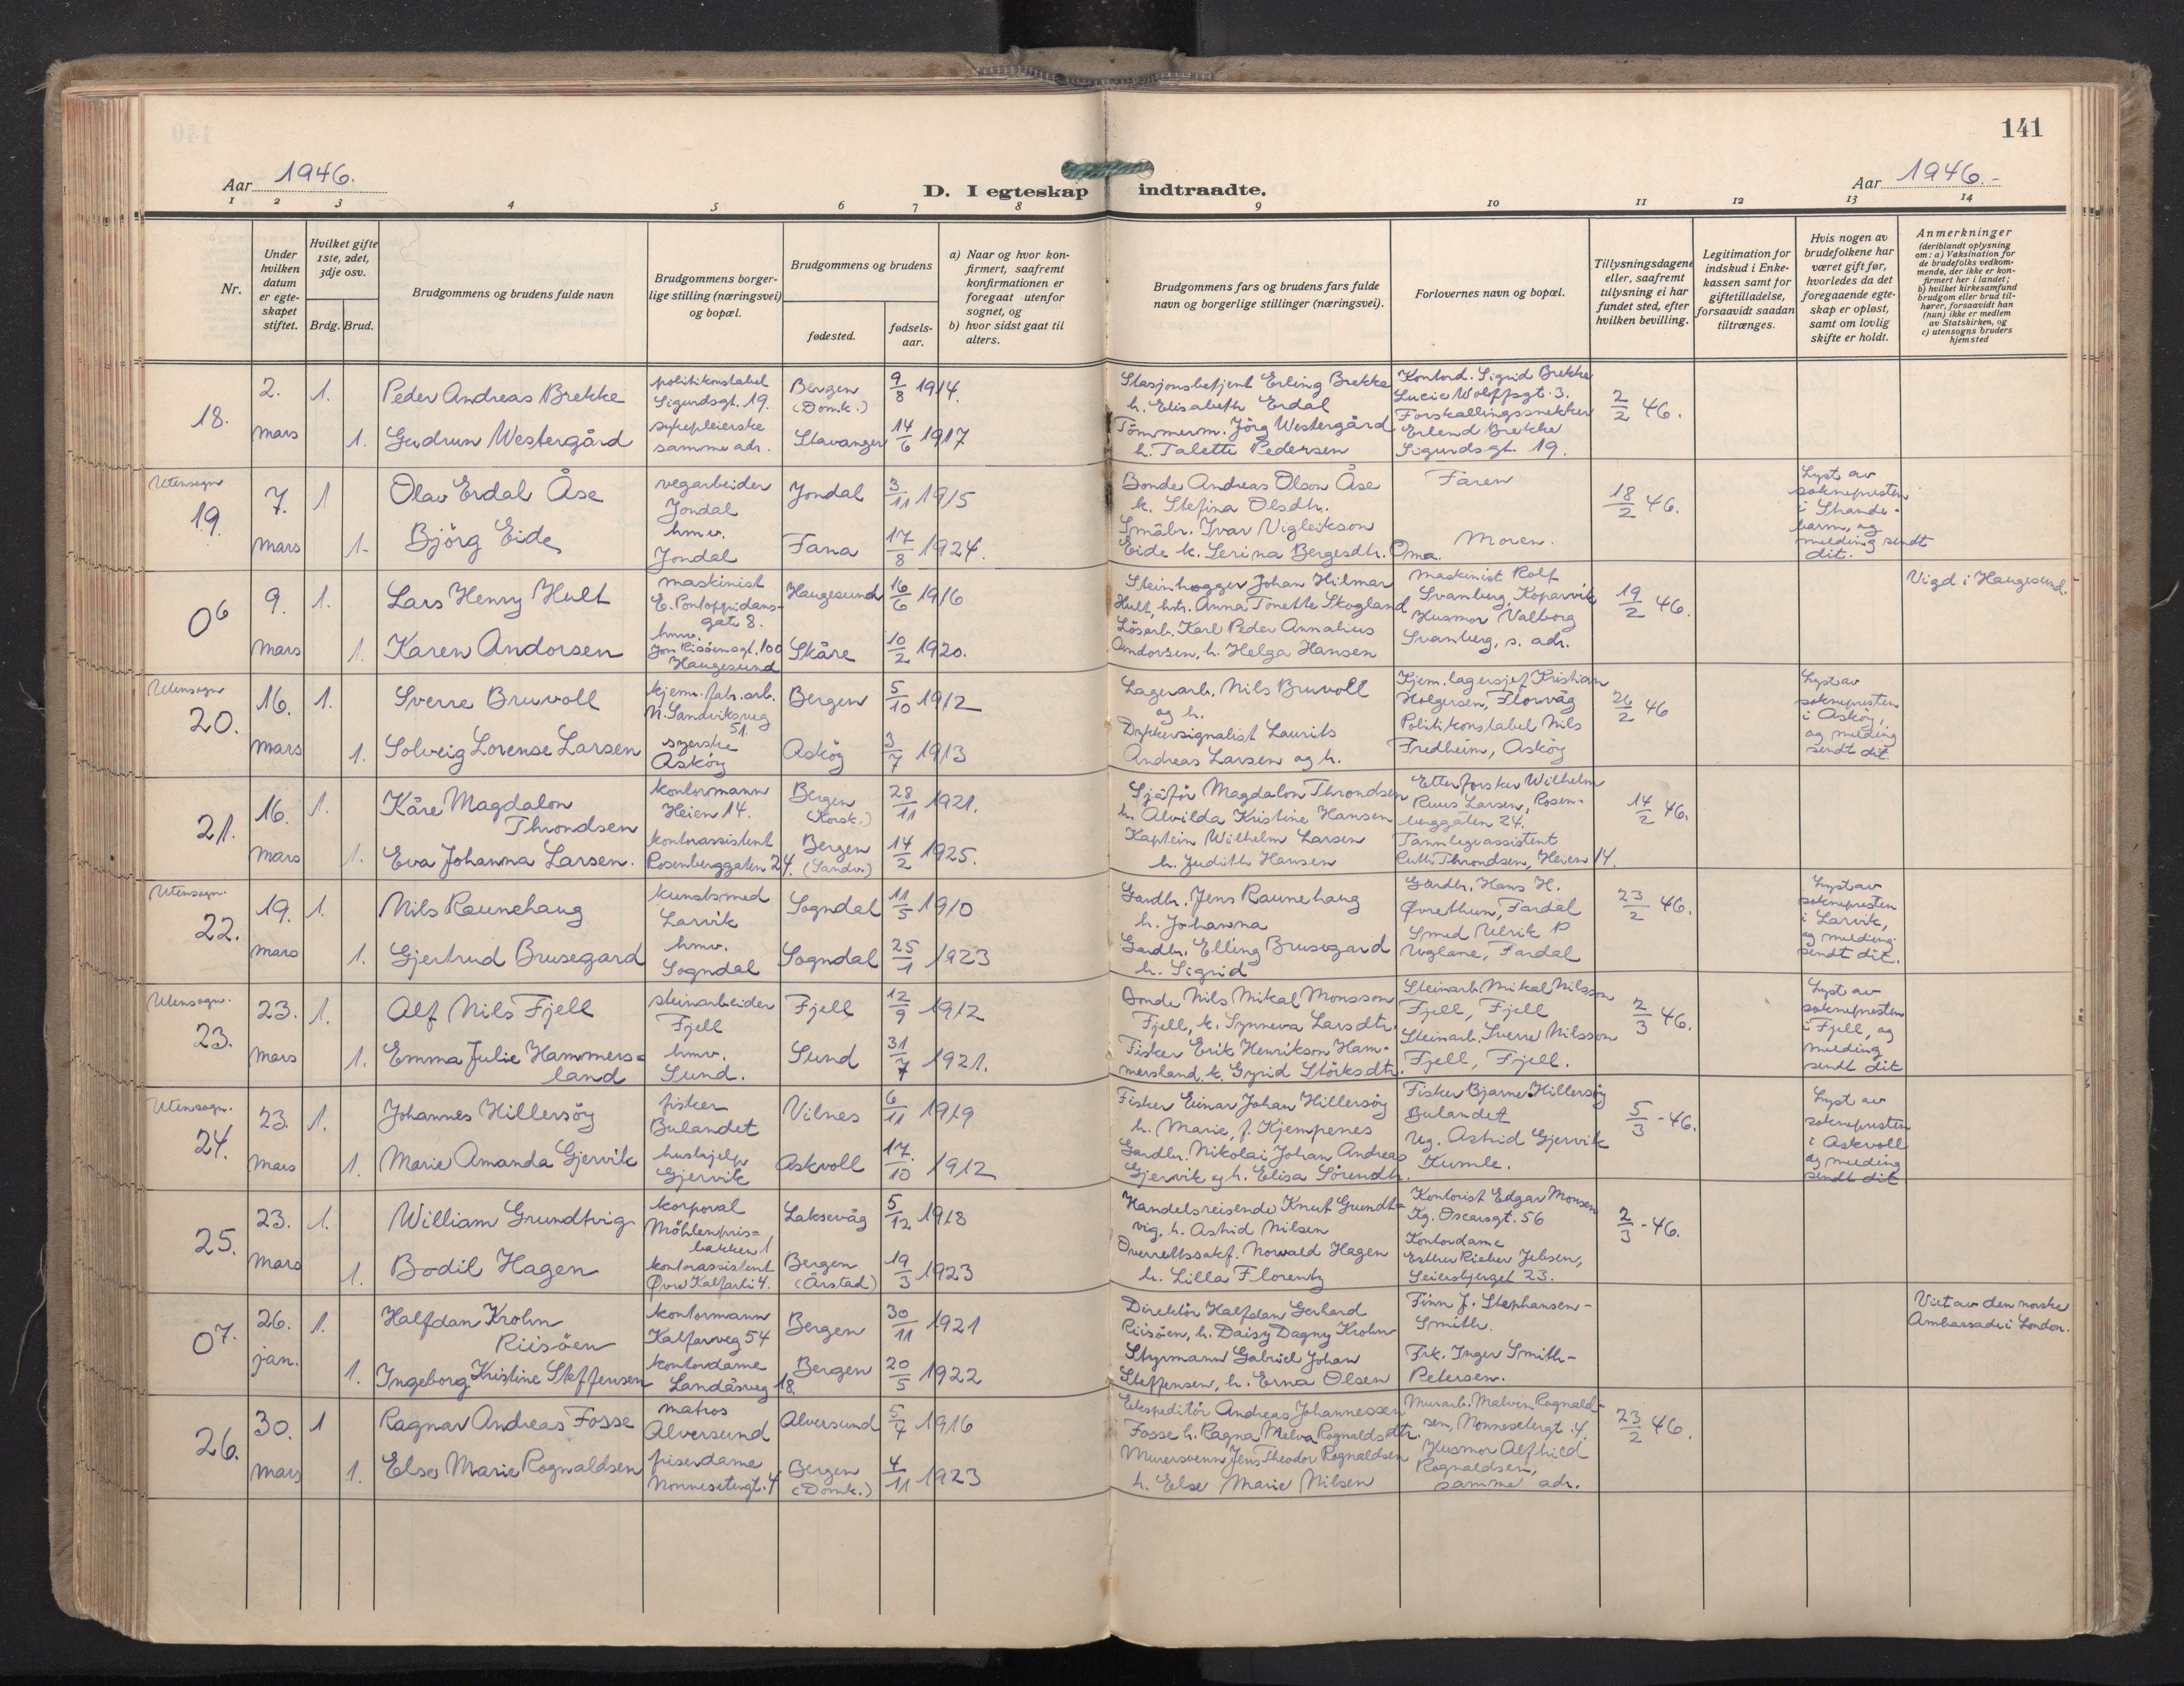 141
Aar 1946.
D. I egteskap indtraadte.
Aar 1946.-
1 2 3 4 5 6 7 8 9 10 11 12 13 14
Nr.
Under hvilken datum er egte-skapet stiftet.
Hvilket gifte 1ste, 2det, 3dje osv.
Brdg. Brud.
Brudgommens og brudens fulde navn
Brudgommens borger-lige stilling (næringsvei) og bopæl.
Brudgommens og brudens
fødested.
fødsels-aar.
a) Naar og hvor kon-firmert, saafremt konfirmationen er foregaat utenfor sognet, og
b) hvor sidst gaat til alters.
Brudgommens fars og brudens fars fulde navn og borgerlige stillinger (næringsvei).
Forlovernes navn og bopæl.
Tillysningsdagene eller, saafremt tillysning ei har fundet sted, efter hvilken bevilling.
Legitimation for indskud i Enke-kassen samt for giftetilladelse, forsaavidt saadan tiltrænges.
Hvis nogen av brudefolkene har været gift før, hvorledes da det foregaaende egte-skap er opløst, samt om lovlig skifte er holdt.
Anmerkninger
(deriblandt oplysning om: a) Vaksination for de brudefolks vedkom-mende, der ikke er kon-firmert her i landet; b) hvilket kirkesamfund brudgom eller brud til-hører, forsaavidt han (hun) ikke er medlem av Statskirken, og c) utensogns bruders hjemsted
18.
2. mars
1.
Peder Andreas Brekke
politikonstabel
Sigurdsgt. 19.
Bergen
(Domk.)
9/8 1914.
1.
Gudrun Westergård
sykepleierske
samme adr.
Stavanger
14/6 1917
Stasjonsbetjent Erling Brekke
h. Elisabeth Erdal
Tömmerm. Jörg Westergård
h. Talette Pedersen
Kontord. Sigrid Brekke
Lucie Wolffsgt. 3.
Forskallingssnekker
Erlend Brekke
Sigurdsgt. 19.
2/2 46.
Utensogns
19.
7. mars
1
Olav Erdal Åse
vegarbeider
Jondal
Jondal
3/11 1915
1.
Björg Eide
hmv.
Jondal
Fana
17/8 1924.
Bonde Andreas Olson Åse
k. Stefina Olsdtr.
Småbr. Ivar Vigleikson
Eide k. Serina Bergesdtr. Oma.
Faren
Moren.
18/2 46.
Lyst av
soknepresten
i Strande-
barm, og
melding sendt
dit.
06
9. mars
1.
Lars Henry Hult
maskinist
E. Pontoppidans-
gate 8.
Haugesund
16/6 1916
1.
Karen Andorsen
hmv.
Haugesund
Skåre
10/2 1920.
Steinhogger Johan Hilmar
Hult, h. Anna Tonette Skogland
Lösarb. Karl Peder Annalius
Andorsen, h. Helga Hansen
Maskinist Rolf
Svanberg, Koparvik
Husmor Valborg
Svanberg, s. adr.
19/2 46.
Vigd i Haugesund.
Utensogns
20.
16. mars
1.
Sverre Bruvoll
kjem. fabr. arb.
N. Sandviksveg
51
Bergen
5/10 1912
1.
Solveig Lorense Larsen
syerske
Asköy
Asköy
3/7 1913
Lagerarb. Nils Bruvoll
og h.
Dykkersignalist Laurits
Andreas Larsen og h.
Kjem. lagersjef Kristian
Holgersen, Florvåg
Politikonstabel Nils
Fredheim, Asköy
26/2 46
Lyst av
soknepresten
i Asköy,
og melding
sendt dit.
21.
16. mars
1.
Kåre Magdalon
Throndsen
kontormann
Heien 14.
Bergen
(Korsk.)
28/11 1921.
1.
Eva Johanna Larsen.
kontorassistent
Rosenberggaten 24.
Bergen
(Sandv.)
14/2 1925.
Sjåför Magdalon Throndsen
h. Alvilda Kristine Hansen
Kaptein Wilhelm Larsen
h. Judith Hansen
Etterforsker Wilhelm
Ruus Larsen, Rosen-
berggaten 24.
Tannlegeassistent
Ruth Throndsen, Heien 14.
14/2 46.
Utensogns.
22.
19. mars
1.
Nils Raunehaug
kunstsmed
Larvik
Sogndal
11/5 1910
1.
Gjertrud Brusegard
hmv.
Sogndal
Sogndal
25/1 1923
Gardbr. Jens Raunehaug
h. Johanna
Gardbr. Elling Brusegard
h. Sigrid
Gardbr. Hans H.
Øvrethun, Fardal
Smed Ulrik P
Uglane, Fardal
23/2 46.
Lyst av
soknepresten
i Larvik,
og melding
sendt dit.
Utensogns.
23.
23. mars
1.
Alf Nils Fjell
steinarbeider
Fjell
Fjell
12/9 1912
1.
Emma Julie Hammers=
land
hmv.
Sund.
Sund
31/7 1921.
Bonde Nils Mikal Monsson
Fjell, k. Synneva Larsdtr.
Fisker Erik Henrikson Ham-
mersland, k. Gyrid Störksdtr.
Steinarb. Mikal Nilsson
Fjell, Fjell
Steinarb. Sverre Nilsson
Fjell, Fjell.
2/3 46.
Lyst av
soknepresten
i Fjell, og
melding
sendt dit
Utensogns.
24.
23. mars
1.
Johannes Hillersöy
fisker
Bulandet
Vilnes
6/11 1919
1.
Marie Amanda Gjervik
hushjelp
Gjervik
Askvoll
17./10 1912
Fisker Einar Johan Hillersöy
h. Marie, f. Kjempenes
Gardbr. Nikolai Johan Andreas
Gjervik og h. Elisa Sörendtr.
Fisker Bjarne Hillersöy
Bulandet
Ug. Astrid Gjervik
Kumle.
5/3 - 46.
Lyst av
soknepresten
i Askvoll
og melding
sendt dit
25.
23. mars
1.
William Grundtvig
korporal
Möhlenpris=
bakken 1
Laksevåg
5/12 1918
1.
Bodil Hagen
kontorassistent
Øvre Kalfarli 4.
Bergen
(Årstad)
19/3 1923
Handelsreisende Knut Grundt=
vig, h. Astrid Nilsen
Overrettssakf. Norvald Hagen
h. Lilla Florentz
Kontorist Edgar Monsen
Kg. Oscarsgt. 56
Kontordame
Esther Rieber Jebsen,
Seiersbjerget 23.
2/3 - 46.
07.
26. jan.
1.
Halfdan Krohn
Riisöen
kontormann
Kalfarveg 54
Bergen
30/11 1921
1.
Ingeborg Kristine Steffensen
kontordame
Landåsveg 18.
Bergen
20/5 1922
Direktör Halfdan Gerhard
Riisöen, h. Daisy Dagny Krohn
Styrmann Gabriel Johan
Steffensen, h. Erna Olsen
Finn J. Stephansen-
Smith.
Frk. Inger Smith-
Petersen.
Viet av den norske
Ambassade i London.
26.
30. mars
1
Ragnar Andreas Fosse
matros
Alversund
Alversund
5/4 1916
1.
Else Marie Rognaldsen
friserdame
Nonnesetergt. 4
Bergen
(Domk.)
4/11 1923
Ekspeditör Andreas Johannessen
Fosse h. Ragna Melva Rognaldsdtr.
Murersvenn Jens Theodor Rognaldsen
h. Else Marie Nilsen
Murarb. Malvin Rognald-
sen, Nonnesetergt. 4.
Husmor Alfhild
Rognaldsen,
samme adr.
23/2 46.